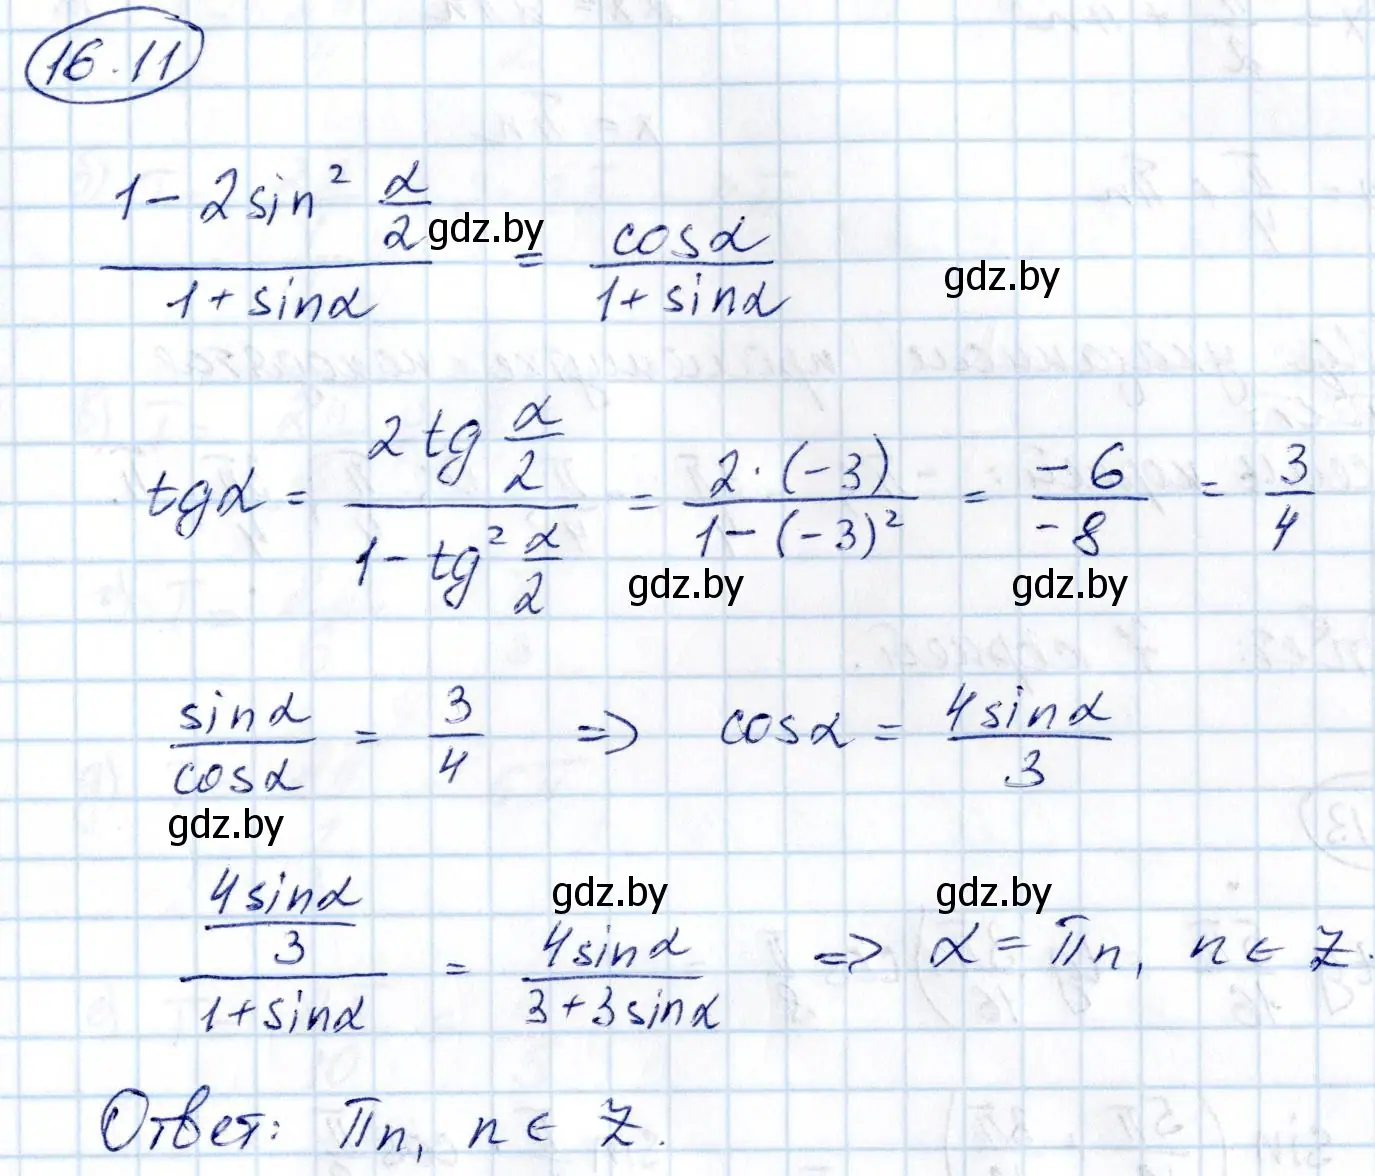 16.11
(1 - 2sin² α/2)/(1 + sinα) = cosα/(1 + sinα)
gdz.by
gdz.by
tgα = (2tg α/2)/(1 - tg² α/2) = (2·(-3))/(1-(-3)²) = -6/-8 = 3/4
gdz.by
gdz.by
sinα/cosα = 3/4 => cosα = 4sinα/3
gdz.by
gdz.by
gdz.by
(4sinα/3)/(1+sinα) = 4sinα/(3+3sinα) => α = πn, n ∈ Z.
Ответ: πn, n ∈ Z.